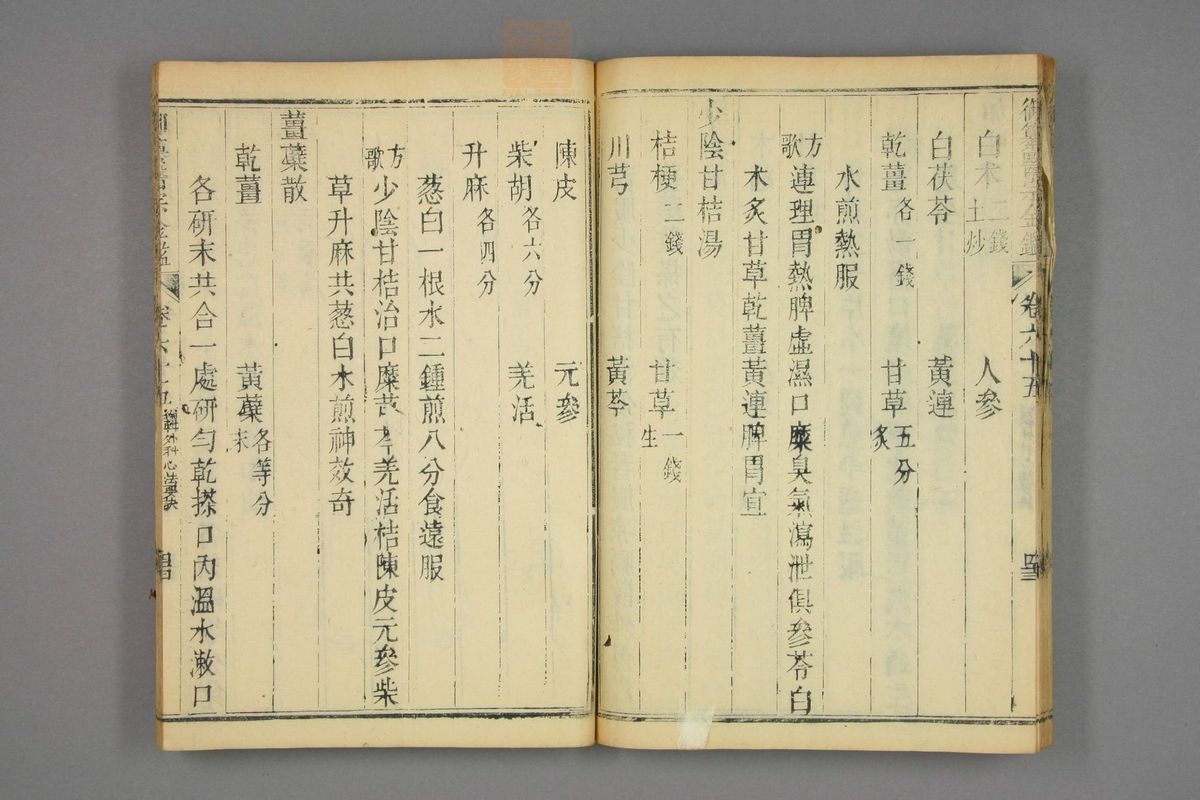 卷六十五
白术二錢土炒　人參
白茯苓　黃連
乾薑各一錢　甘草五分炙
水煎熱服
方歌　連理胃熱脾虛濕口糜臭氣瀉泄俱參苓白
术炙甘草乾薑黃連脾胃宜
少陰甘桔湯
桔梗二錢　甘草一錢生
川芎　黃芩
陳皮　元參
柴胡各六分　羌活
升麻各四分
葱白一根水二鍾煎八分食遠服
方歌　少陰甘桔治口糜芎芩羌活桔陳皮元參柴
草升麻共葱白水煎神效奇
薑蘗散
乾薑　黃蘗各等分末
各研末共合一處研勻乾搽口內溫水漱口